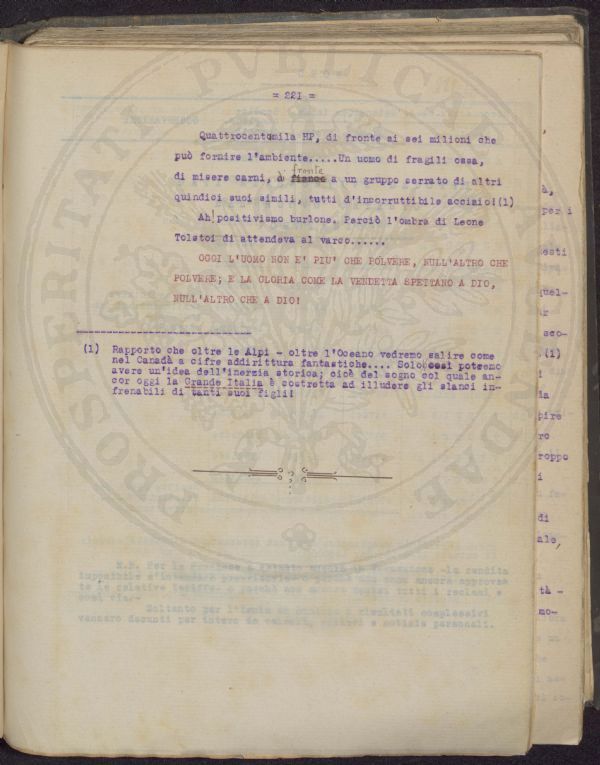 = 221 =
Quattrocentomila HP, di fronte ai sei milioni che
può fornire l'ambiente.....Un uomo di fragili ossa,
fronte
di misere carni, à fianco a un gruppo serrato di altri
quindici suoi simili, tutti d'incorruttibile acciaio!(1)
Ah! positivismo burlone. Perciò l'ombra di Leone
Tolstoi di attendeva al varco......
OGGI L'UOMO NON E' PIU' CHE POLVERE, NULL'ALTRO CHE
POLVERE; E LA GLORIA COME LA VENDETTA SPETTANO A DIO,
NULL'ALTRO CHE A DIO!
(1) Rapporto che oltre le Alpi - oltre l'Oceano vedremo salire come
nel Canadà a cifre addirittura fantastiche.... Solo così potremo
avere un'idea dell'inerzia storica; cioè del sogno col quale an-
cor oggi la Grande Italia è costretta ad illudere gli slanci in-
frenabili di tanti suoi figli!
PROSPERITATI PUBLICAE AUGENDAE
à,
per i
esti
quel-
sco-
.(1)
i
ia
pire
ro
roppo
i
di
ale,
tà -
mo-